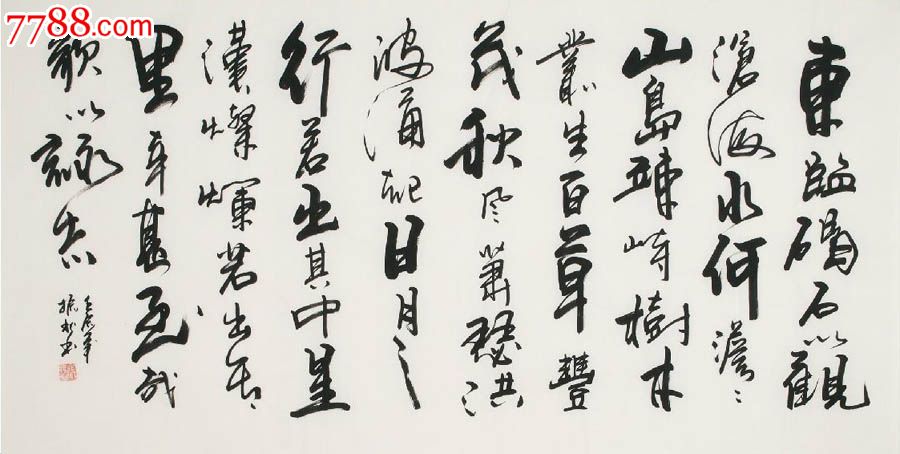 7788.com
東臨碣石以觀
滄海水何澹〻
山島竦峙樹木
叢生百草豐
茂秋風蕭瑟洪
波涌起日月之
行若出其中星
漢燦爛若出其
里幸甚至哉
歌以詠志
壬辰年